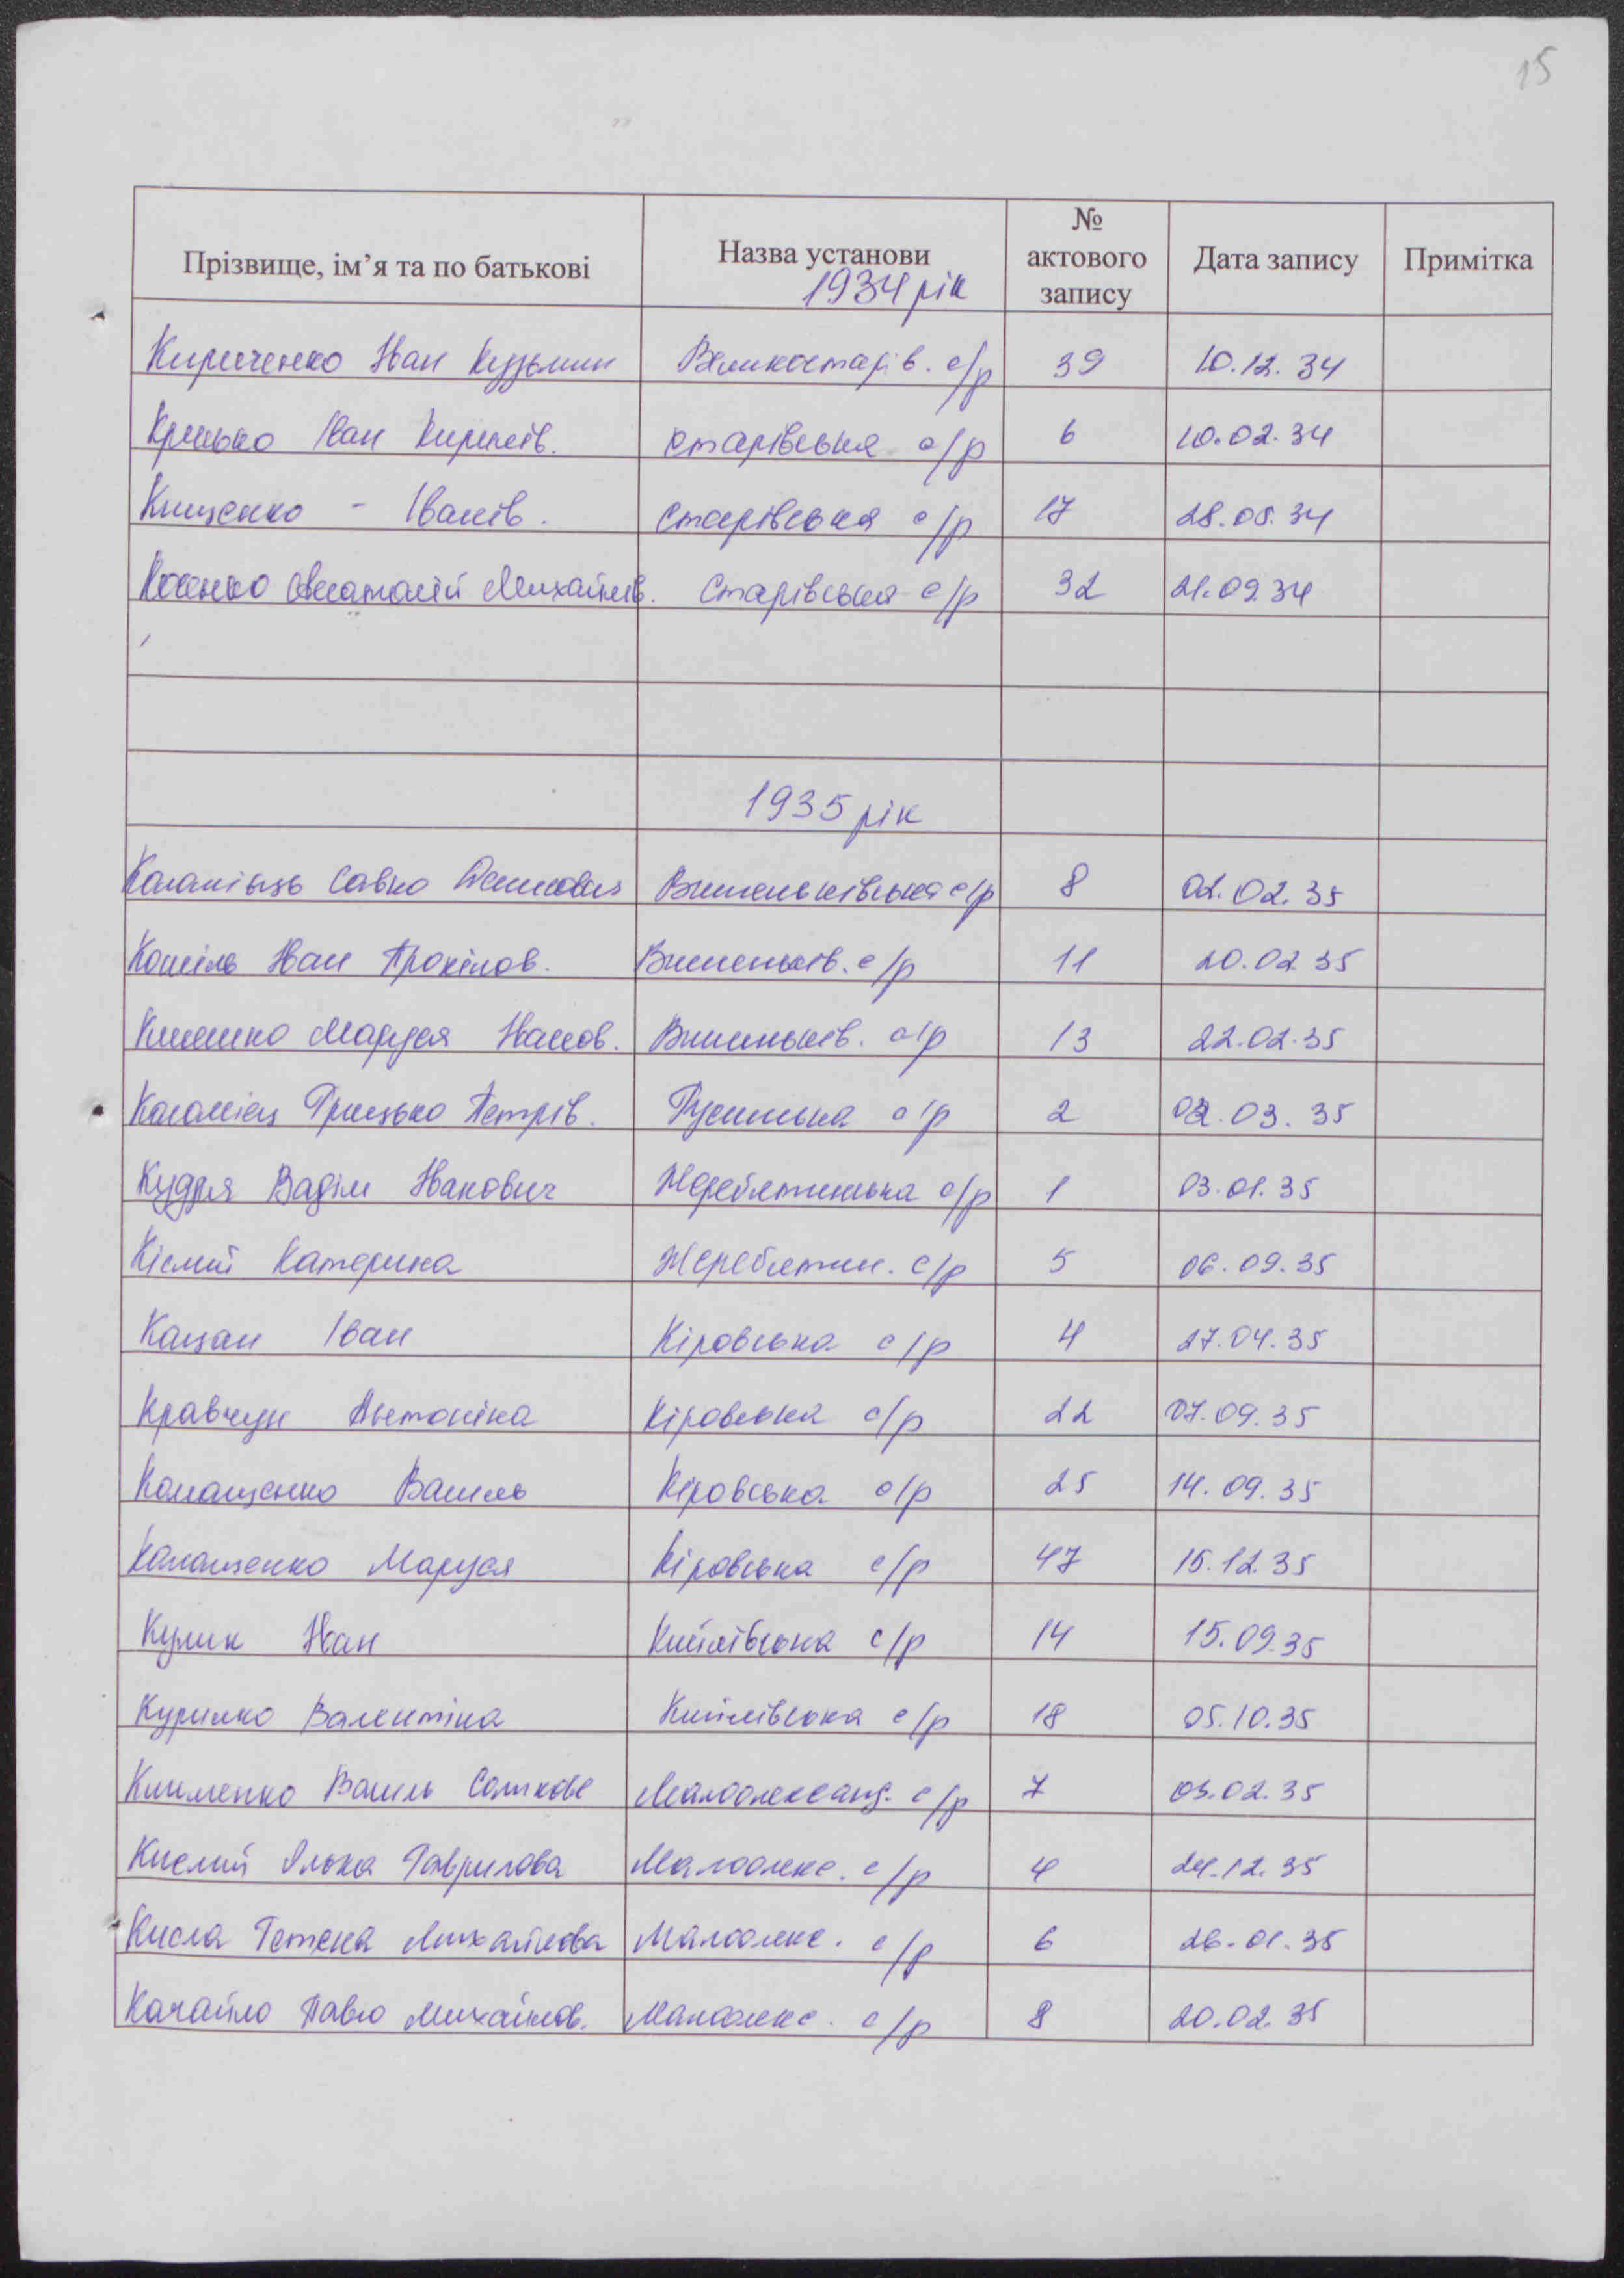 15
Прізвище, ім’я та по батькові Назва установи № актового запису Дата запису Примітка
1934 рік
Кириченко Іван Кузьмин Великостарів. с/р 39 10.12.34
Іван Кирилів. старівська с/р 6 10.02.34
Кищенко - Іванів. старівська с/р 17 28.05.34
Анатолій Михайлів. Старівська с/р 32 21.09.34
1935 рік
Савко Вишеньківська с/р 8 02.02.35
Кошіль Іван Прокіпов. Вишеньків. с/р 11 20.02.35
Маруся Іванов. Вишеньків. с/р 13 22.02.35
Коломієц Грицько Петрів. с/р 2 02.03.35
Кудря Вадім Іванович Жеребятинська с/р 1 03.01.35
Кіслий Катерина Жеребятин. с/р 5 06.09.35
Кацан Іван Кіровська с/р 4 27.04.35
Кравчун Антоніна Кіровська с/р 22 07.09.35
Василь Кіровська с/р 25 14.09.35
Маруся Кіровська с/р 47 15.12.35
Кулик Іван Кийлівська с/р 14 15.09.35
Курилко Валентіна Кийлівська с/р 18 05.10.35
Клименко Василь Малоолександ. с/р 7 03.02.35
Кислий Олька Гаврилова Малоолекс. с/р 4 24.12.35
Кисла Тетена Михайлова Малоолекс. с/р 6 26.01.35
Качайло Павло Михайлов. Малоолекс. с/р 8 20.02.35